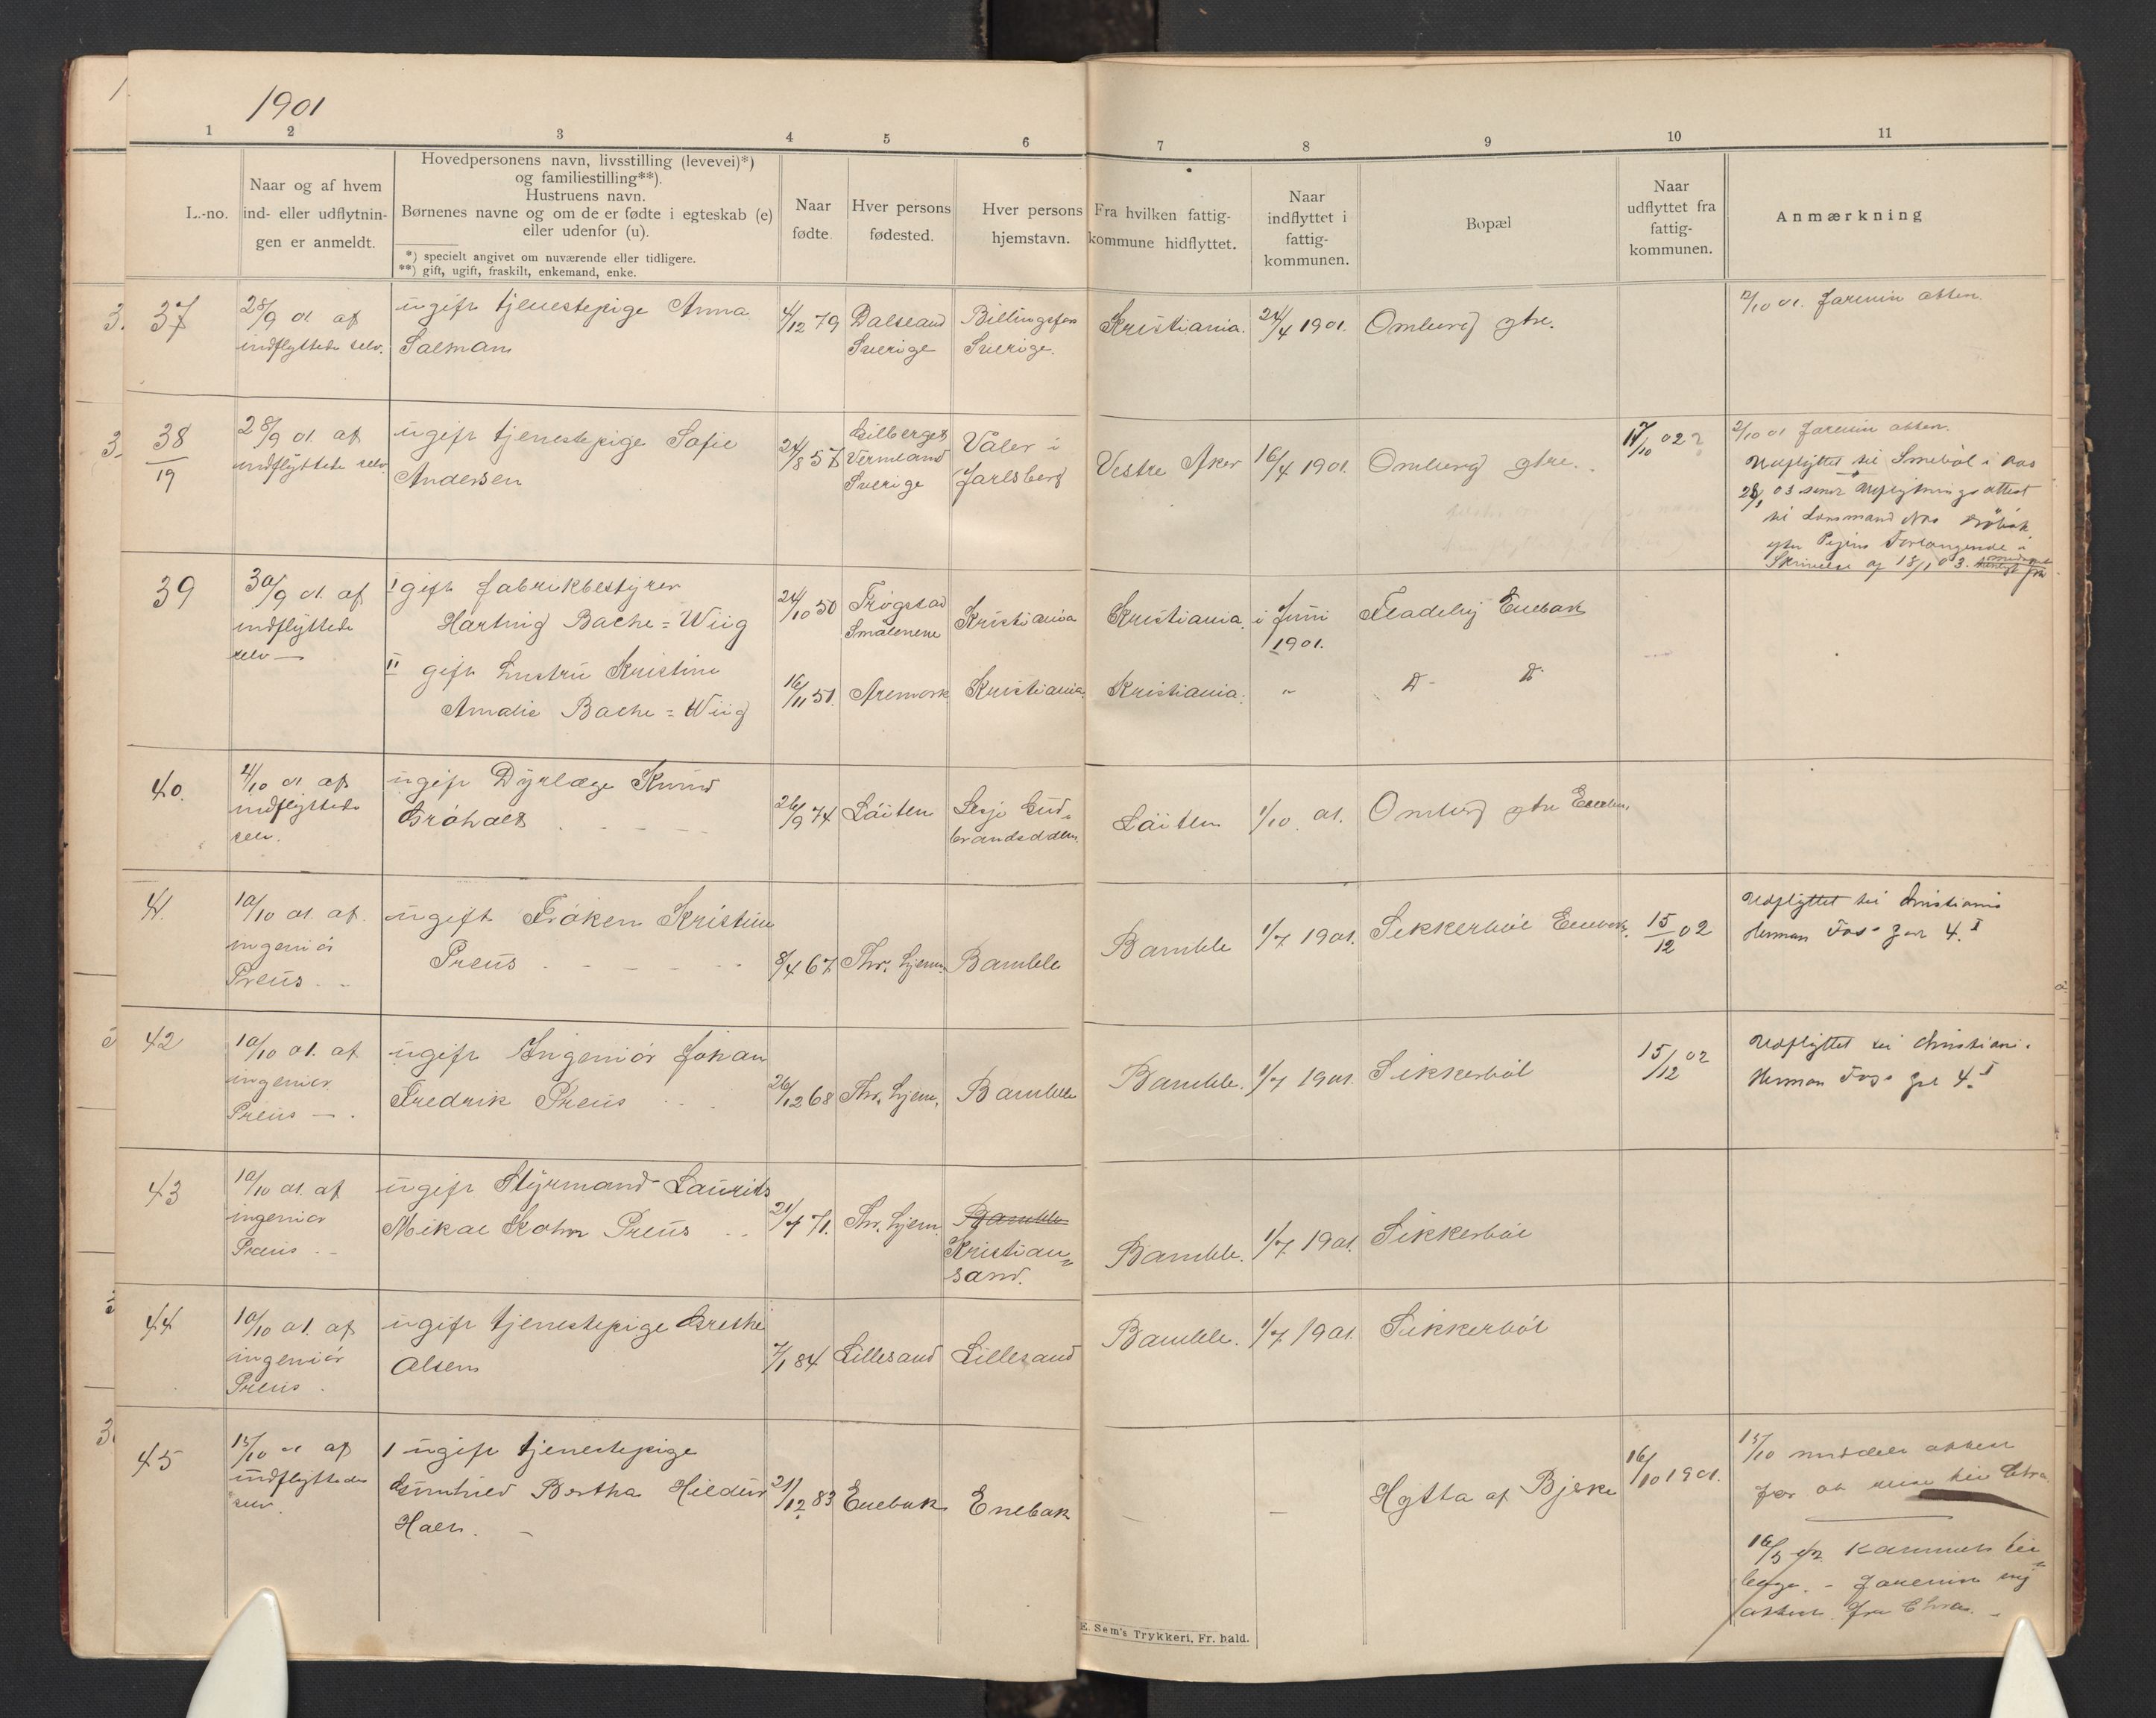 1901
1 2 3 4 5 6 7 8 9 10 11
L.-no.
Naar og af hvem
ind- eller udflytnin-
gen er anmeldt.
Hovedpersonens navn, livsstilling (levevei)*)
og familiestilling**).
Hustruens navn.
Børnenes navne og om de er fødte i egteskab (e)
eller udenfor (u).
*) specielt angivet om nuværende eller tidligere.
**) gift, ugift, fraskilt, enkemand, enke.
Naar
fødte.
Hver persons
fødested.
Hver persons
hjemstavn.
Fra hvilken fattig-
kommune hidflyttet.
Naar
indflyttet i
fattig-
kommunen.
Bopæl
Naar
udflyttet fra
fattig-
kommunen.
Anmærkning
37
28/9 01 af
indflyttede selv.
ugift tjenestepige Anna
Salman
4/12 79
Dalsland
Sverige
Billingsfors
Sverige.
Kristiania.
24/4 1901.
Omberg gtre.
12/10 01. attest.
38
19
28/9 01. af
indflyttede selv
ugift tjenestepige Sofie
Andersen
24/8 57
Silberget
Vermland
Sverige
Våler i
Jarlsberg
Vestre Aker
16/4 1901.
Omberg gtre.
17/10 02
2/10 01 attest.
Udflyttet til Smebøl i Aas
28/1 03 send Udflytnings attest
til Lensmand
Pigens Forlangende i
Skrivelse af 18/1 03.
39
30/9 01. af
indflyttede
selv
I gift fabrikbestyrer
Hartvig Bache=Wiig
24/10 50
Trøgstad
Smalenene
Kristiania
Kristiania.
i Juni
1901.
Fladeby Enebak
II gift hustru Kristine
Amalie Bache=Wiig
16/11 51.
Aremark
Kristiania.
Kristiania.
"
D- D-
40.
4/10 01. af
indflyttede
selv.
ugift Dyrlæge Knud
Brøholt
26/9 74
Løiten
Lesje Gud-
brandsdalen.
Løiten
1/10 01.
Omberg gtre Enebak
41.
10/10 01. af.
ingeniør
Preus
ugift Frøken Kristine
Preus
8/4 67
Thr. hjem.
Bamble
Bamble
1/7 1901.
Sikkerbøl Enebak.
15/12 02
Udflyttet til Christiania
Herman Foss' Gade 4. I
42
10/10 01. af
ingeniør
Preus
ugift Ingeniør Johan
Fredrik Preus
26/12 68
Thr. hjem.
Bamble
Bamble.
1/7 1901.
Sikkerbøl
15/12 02
Udflyttet til Christiania
Herman Foss' gade 4. I
43
10/10 01. af
ingeniør
Preus
ugift Styrmand Laurits
Mikal Kohn Preus
21/4 71.
Thr. hjem.
Bamble
Kristian-
sand.
Bamble.
1/7 1901.
Sikkerbøl
44
10/10 01. af
ingeniør
Preus
ugift tjenestepige Grethe
Olsen
7/1 84
Lillesand
Lillesand
Bamble.
1/7 1901.
Sikkerbøl
45
15/10 01 af
indflyttede
selv.
1 ugift tjenestepige
Gunhild Bertha Hildur
Halv.
21/12 83
Enebak
Enebak
Hytta af Bjerke
16/10 1901.
15/10 meddelt attest
for at reise til Chra.
16/5 02 kommet til
bage. - forevist ny
attest fra Chra.
E. Sem's Trykkeri, Fr. hald.